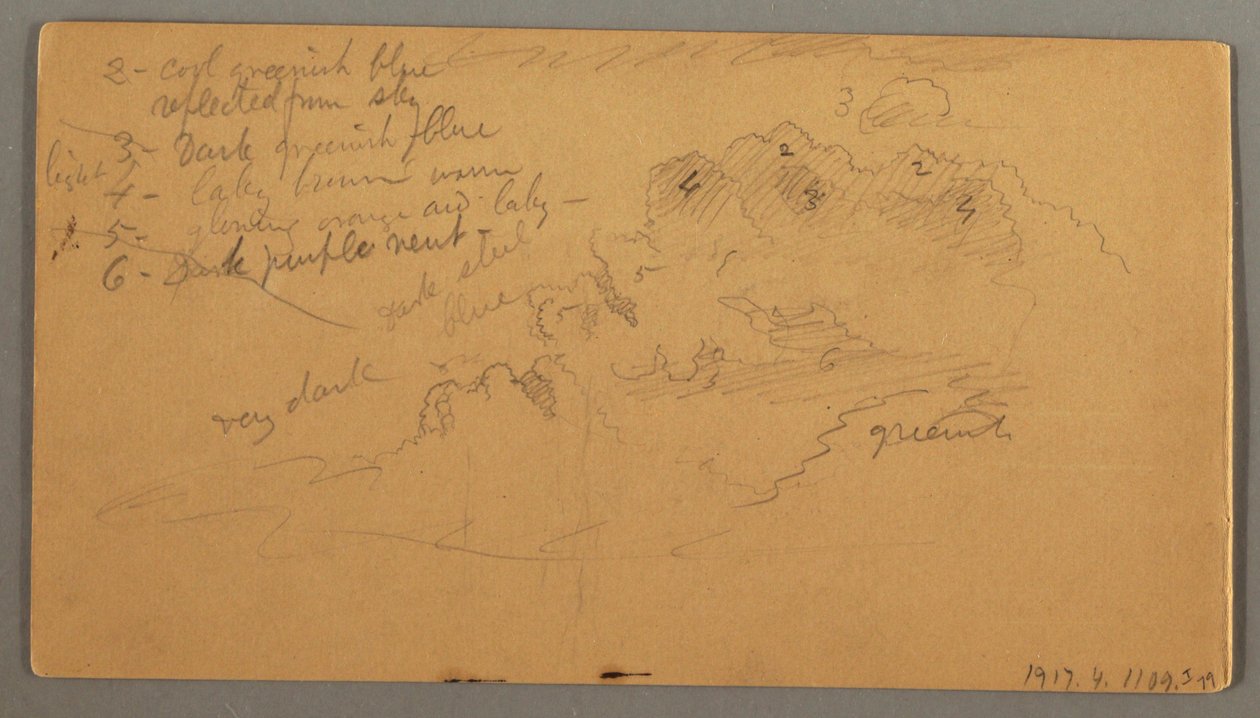 2 - cool greenish blue
reflected from sky
3 - Dark greenish blue
light
4 - laky brown warm
5 - glowing orange and laky -
6 - Dark purple neut -
Dark steel
blue
very dark
3
2
2
4
3
4
5
5
6
greenish
1917.4.1109.I 19